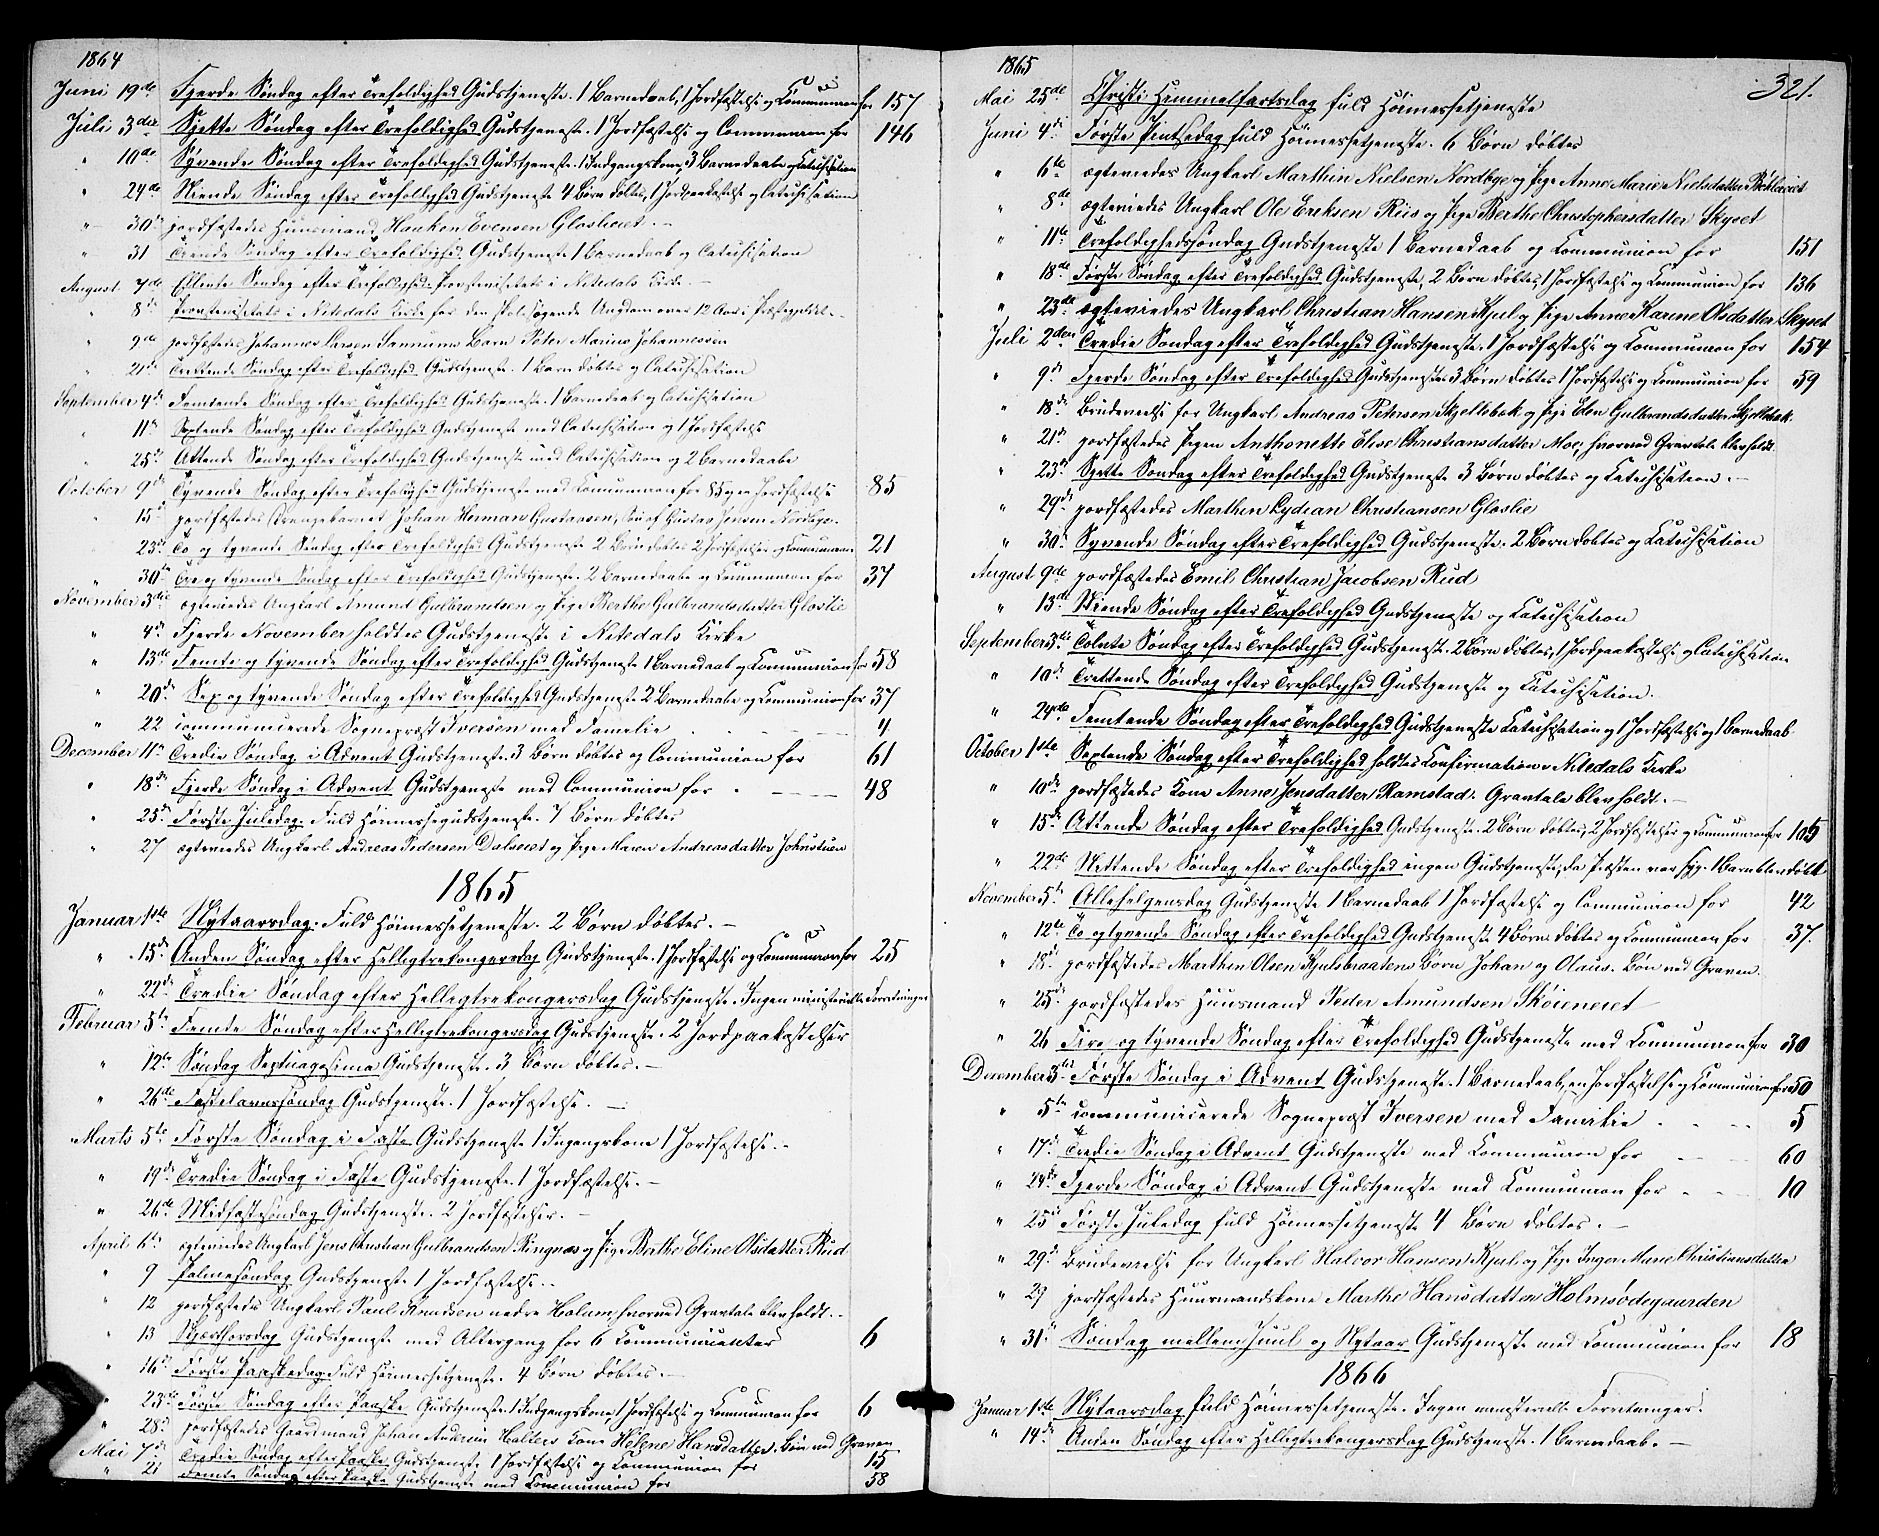 1864
Juni 19de Fjerde Søndag efter Trefoldighed Gudstjeneste. 1 Barnedaab, 1 Jordfæstelse og Communion for 157
Juli 3die Sjette Søndag efter Trefoldighed Gudstjeneste. 1 Jordfæstelse og Communion for 146
" 10de Syvende Søndag efter Trefoldighed Gudstjeneste. 1 Indgangskone, 3 Barnedaabe og Catechisation
" 24de Niende Søndag efter Trefoldighed Gudstjeneste 4 Børn døbtes, 1 Jordpaakastelse og Catechisation
" 30te jordfæstedes Huusmand Haakon Evensen Gloslieiet. -
" 31 Tiende Søndag efter Trefoldighed Gudstjeneste 1 Barnedaab og Catechisation
August 7de Ellevte Søndag efter Trefoldighed. Provstevisitats i Nitedals Kirke. -
" 8de Provstevisitats i Nitedals Kirke for den skolesøgende Ungdom over 12 Aar i Præstegjeldet. -
" 9de jordfæstedes Johannes Larsen Sannums Barn Peter Marius Johannessen
" 21de Trettende Søndag efter Trefoldighed Gudstjeneste. 1 Barn døbtes og Catechisation
September 4de Femtende Søndag efter Trefoldighed Gudstjeneste. 1 Barnedaab og Catechisation
" 11te Sextende Søndag efter Trefoldighed Gudstjeneste med Catechisation og 1 Jordfæstelse
" 25de Attende Søndag efter Trefoldighed Gudstjeneste med Catechisation og 2 Barnedaabe
October 9de Tyvende Søndag efter Trefoldighed Gudstjeneste med Communion for 85 og en Jordfæstelse 85
" 15de jordfæstedes Drengebarnet Johan Herman Gustavsen, Søn af Gustav Jensen Nordbye. -
" 23de To og tyvende Søndag efter Trefoldighed Gudstjeneste 2 Børn døbtes 2 Jordfæstelser og Communion 21
" 30te Tre og tyvende Søndag efter Trefoldighed Gudstjeneste. 2 Barnedaabe og Communion for 37
November 3die ægteviedes Ungkarl Amund Gulbrandsen og Pige Berthe Gulbrandsdatter Gloslie
" 4de Fjerde November holdtes Gudstjeneste i Nitedals Kirke
" 13de Femte og tyvende Søndag efter Trefoldighed Gudstjeneste 1 Barnedaab og Communion for 58
" 20de Sex og tyvende Søndag efter Trefoldighed Gudstjeneste 2 Barnedaabe og Communion for 37
" 22 communicerede Sognepræst Iversen med Familie 4
December 11te Tredie Søndag i Advent Gudstjeneste. 3 Børn døbtes og Communion for 61
" 18de Fjerde Søndag i Advent Gudstjeneste med Communion for 48
" 25de Første Juledag. Fuld Høimessegudstjeneste. 7 Børn døbtes
" 27 ægteviedes Ungkarl Andreas Pedersen Dalseiet og Pige Maren Andreasdatter Johnstuen
1865
Januar 1ste Nytaarsdag. Fuld Høimessetjeneste. 2 Børn døbtes. -
" 15de Anden Søndag efter Helligtrekongersdag Gudstjeneste. 1 Jordfæstelse og Communion for 25
" 22de Tredie Søndag efter Helligtrekongersdag Gudstjeneste. Ingen ministerielle Forretninger
Februar 5te Femte Søndag efter Helligtrekongersdag Gudstjeneste. 2 Jordpaakastelser
" 12te Søndag Septuagesima Gudstjeneste. 3 Børn døbtes. -
" 26de Fastelavnssøndag Gudstjeneste. 1 Jordfæstelse. -
Marts 5te Første Søndag i Faste Gudstjeneste 1 Ingangskone 1 Jordfæstelse. -
" 19de Tredie Søndag i Faste Gudstjeneste. 1 Jordfæstelse. -
" 26de Midfastesøndag Gudstjeneste. 2 Jordfæstelser. -
April 6te ægteviedes Ungkarl Jens Christian Gulbrandsen Ringnæs og Pige Berthe Eline Olsdatter Rud
" 9 Palmesøndag Gudstjeneste 1 Jordfæstelse. -
" 12 jordfæstedes Ungkarl Paul Knudsen nedre Holum, hvorved Gravtale blev holdt. -
" 13 Skjærthorsdag Gudstjeneste med Altergang for 6 Communicanter 6
" 16de Første Paaskedag Fuld Høimessetjeneste. 4 Børn døbtes. -
" 23de Første Søndag efter Paaske Gudstjeneste. 1 Indgangskone, 1 Jordfæstelse og Communion for 6
" 28de jordfæstedes Gaardmand Johan Andreas Holters Kone Helene Hansdatter. Bøn ved Graven
Mai 7de Tredie Søndag efter Paaske Gudstjeneste 1 Jordfæstelse og Communion for 15
" 21 Femte Søndag efter Paaske Gudstjeneste med Communion for 58
1865
321.
Mai 25de Christi Himmelfartsdag fuld Høimessetjeneste
Juni 4de Første Pintsedag fuld Høimessetjeneste. 6 Børn døbtes
" 6te ægteviedes Ungkarl Marthin Nielsen Nordbye og Pige Anne Marie Nielsdatter
" 8de ægteviedes Ungkarl Ole Eriksen Riis og Pige Berthe Christophersdatter Skyset
" 11te Trefoldighedssøndag Gudstjeneste 1 Barnedaab og Communion for 151
" 18de Første Søndag efter Trefoldighed Gudstjeneste, 2 Børn døbtes, 1 Jordfæstelse og Communion for 136
" 23de ægteviedes Ungkarl Christian Hansen Kjul og Pige Anne Karine Olsdatter Skyset
Juli 2den Tredie Søndag efter Trefoldighed Gudstjeneste. 1 Jordfæstelse og Communion for 154
" 9de Fjerde Søndag efter Trefoldighed Gudstjeneste 3 Børn døbtes 1 Jordfæstelse og Communion for 59
" 18de Brudevielse for Ungkarl Andreas Petersen Skjellebæk og Pige Elen Gulbrandsdatter Skjellebæk.
" 21de jordfæstedes Pigen Anthonette Elise Christiansdatter Moe, hvorved Gravtale blev holdt.
" 23de Sjette Søndag efter Trefoldighed Gudstjeneste 3 Børn døbtes og Katechisation. -
" 29de jordfæstedes Marthin Lydian Christiansen Gloslie
" 30te Syvende Søndag efter Trefoldighed Gudstjeneste. 2 Børn døbtes og Katechisation
August 9de jordfæstedes Emil Christian Jacobsen Rud
" 13de Niende Søndag efter Trefoldighed Gudstjeneste og Katechisation
September 3die Tolvte Søndag efter Trefoldighed Gudstjeneste. 2 Børn døbtes, 1 Jordpaakastelse og Catechisation
" 10de Trettende Søndag efter Trefoldighed Gudstjeneste og Katechisation.
" 24de Femtende Søndag efter Trefoldighed Gudstjeneste Katechisation og 1 Jordfæstelse og 1 Barnedaab
October 1ste Sextende Søndag efter Trefoldighed holdtes Confirmation i Nitedals Kirke
" 10de jordfæstedes Kone Anne Jensdatter Ramstad. Gravtale blev holdt. -
" 15de Attende Søndag efter Trefoldighed Gudstjeneste. 2 Børn døbtes, 2 Jordfæstelser og Communion for 105
" 22de Nittende Søndag efter Trefoldighed ingen Gudstjeneste, da Præsten var syg. 1 Barn blev døbt
November 5te Allehelgensdag Gudstjeneste 1 Barnedaab 1 Jordfæstelse og Communion for 42
" 12te To og tyvende Søndag efter Trefoldighed Gudstjeneste 4 Børn døbtes og Communion for 37.
" 18de jordfæstedes Marthin Olsen Kjulsbraatens Børn Johan og Olaus. Bøn ved Graven.
" 25de jordfæstedes Huusmand Peder Amundsen Skøieneiet
" 26 Fire og tyvende Søndag efter Trefoldighed Gudstjeneste med Communion for 30
December 3die Første Søndag i Advent Gudstjeneste. 1 Barnedaab, en Jordfæstelse og Communion for 50
" 5te communicerede Sognepræst Iversen med Familie 5
" 17de Tredie Søndag i Advent Gudstjeneste med Communion for 60
" 24de Fjerde Søndag i Advent Gudstjeneste med Communion for 10
" 25de Første Juledag fuld Høimessetjeneste 4 Børn døbtes. -
" 29de Brudevielse for Ungkarl Halvor Hansen Kjul og Pige Inger Marie Christiansdatter
" 29 jordfæstedes Huusmandskone Marthe Hansdatter Holmsødegaarden
" 31te Søndag mellem Juul og Nytaar Gudstjeneste med Communion for 18
1866
Januar 1ste Nytaarsdag fuld Høimessetjeneste. Ingen ministerielle Forretninger.
" 14de Anden Søndag efter Helligtrekongersdag Gudstjeneste. 1 Barnedaab. -